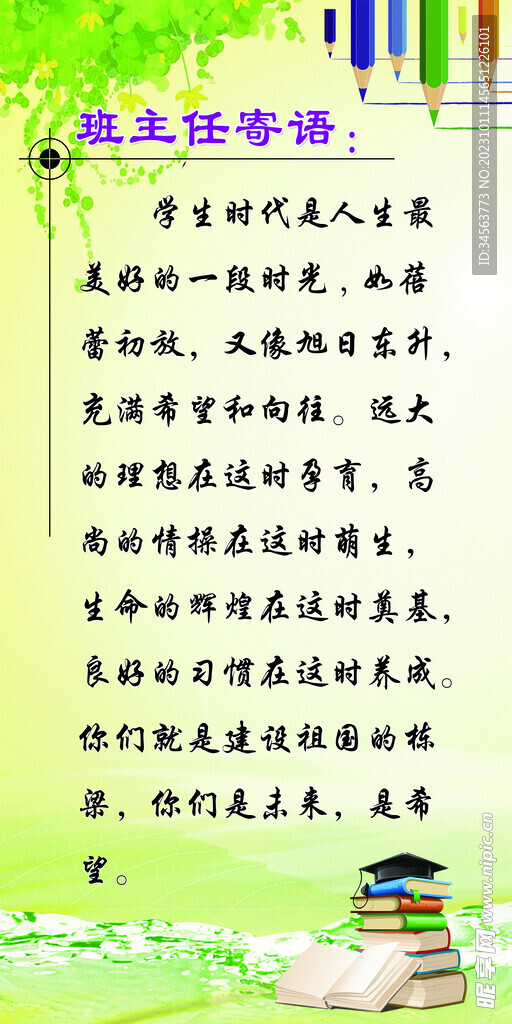 班主任寄语：
学生时代是人生最
美好的一段时光，如蓓
蕾初放，又像旭日东升，
充满希望和向往。远大
的理想在这时孕育，高
尚的情操在这时萌生，
生命的辉煌在这时奠基，
良好的习惯在这时养成。
你们就是建设祖国的栋
梁，你们是未来，是希
望。
ID:34563773 NO:20231011145651226101
昵享网 www.nipic.cn